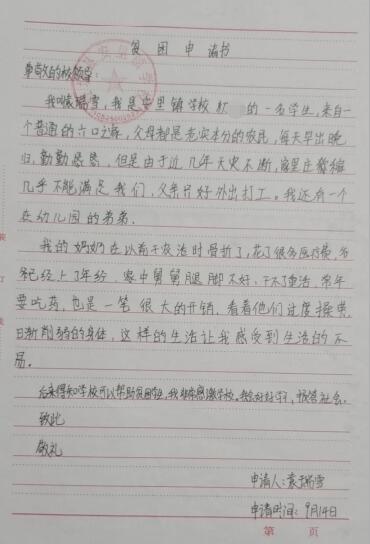 贫困申请书
尊敬的校领导:
我叫袁瑞雪，我是安里镇学校红 的一名学生，来自一
个普通的六口之家，父母都是老实本分的农民，每天早出晚
归，勤勤恳恳，但是由于近几年天灾不断，家里庄稼
几乎不能满足我们，父亲只好外出打工。我还有一个
在幼儿园的弟弟。
我的奶奶在以前干农活时骨折了，花了很多医疗费，爷
爷已经上了年纪，家中舅舅腿脚不好，干不了重活，常年
要吃药，也是一笔很大的开销，看着他们过度操劳，
日渐削弱的身体，这样的生活让我感受到生活的不
易。
后来得知学校可以帮助贫困生，我非常感激学校。我会好好学习，报答社会。
致此
敬礼
申请人:袁瑞雪
申请时间:9月14日
第 页